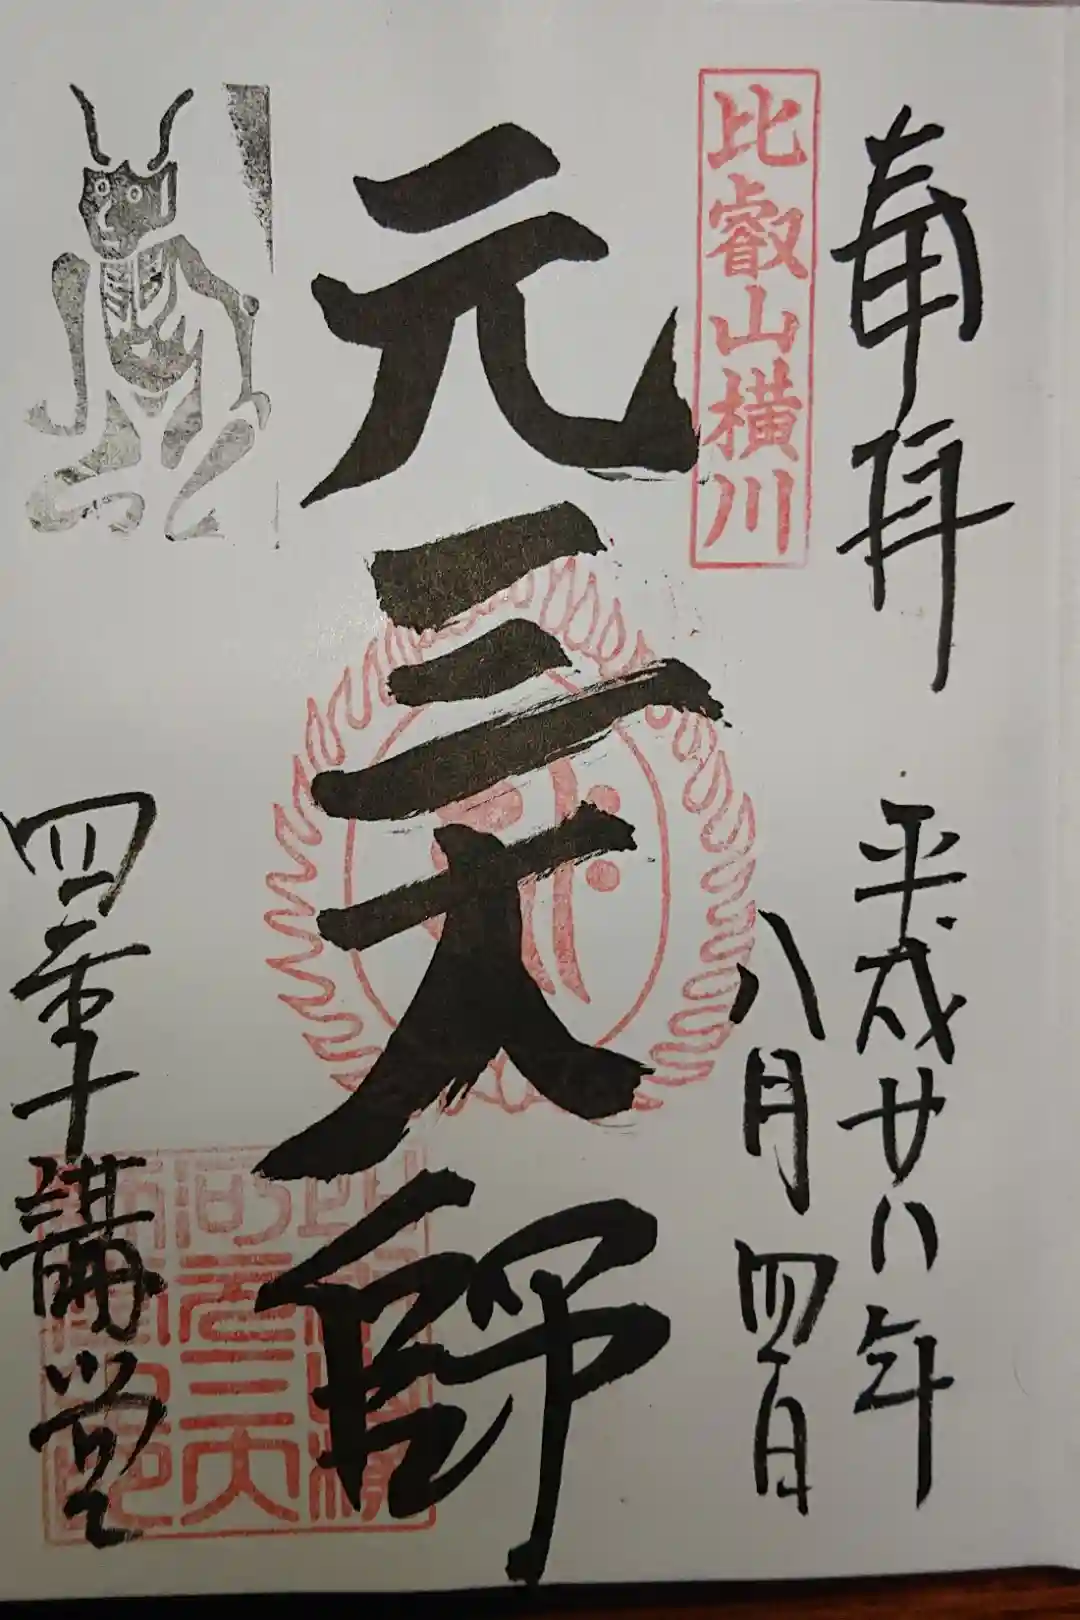 奉拝
平成廿八年
八月四日
比叡山横川
元三大師
四季講堂